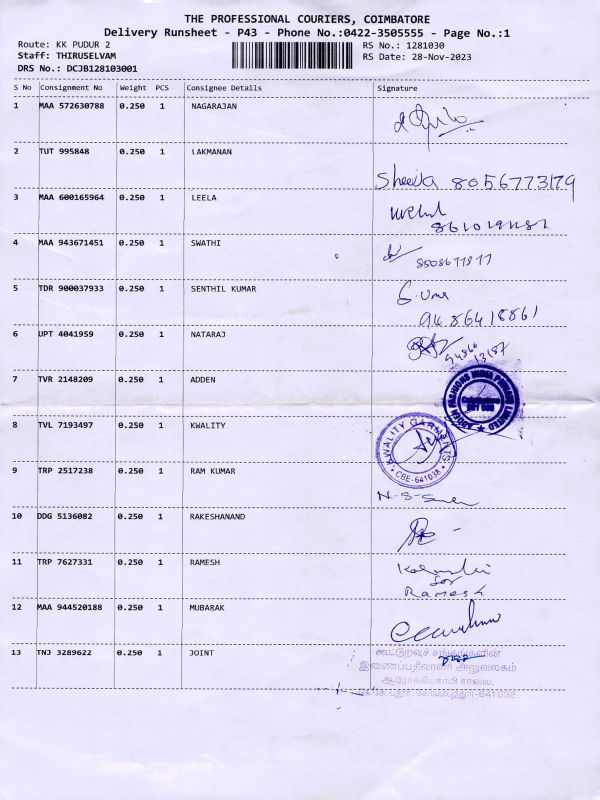 THE PROFESSIONAL COURIERS, COIMBATORE
Delivery Runsheet - P43 - Phone No.:0422-3505555 - Page No.:1
Route: KK PUDUR 2
RS No.: 1281030
Staff: THIRUSELVAM
RS Date: 28-Nov-2023
DRS No.: DCJB128103001
S No Consignment No Weight PCS Consignee Details Signature
1 MAA 572630788 0.250 1 NAGARAJAN
2 TUT 995848 0.250 1 LAKMANAN
Sheela 8056773179
3 MAA 600165964 0.250 1 LEELA
4 MAA 943671451 0.250 1 SWATHI
5 TDR 900037933 0.250 1 SENTHIL KUMAR
S. Uma
9486418861
6 UPT 4041959 0.250 1 NATARAJ
94860
13187
7 TVR 2148209 0.250 1 ADDEN
Coimbatore
641 038
8 TVL 7193497 0.250 1 KWALITY
KWALITY GARMENTS
CBE-641038
9 TRP 2517238 0.250 1 RAM KUMAR
10 DDG 5136082 0.250 1 RAKESHANAND
11 TRP 7627331 0.250 1 RAMESH
for
Ramesh
12 MAA 944520188 0.250 1 MUBARAK
13 TNJ 3289622 0.250 1 JOINT
கூட்டுறவுச் சங்கங்களின்
இணைப்பதிவாளர் அலுவலகம்
ஆரோக்கியசாமி சாலை,
புதூர், கோயம்புத்தூர்-641038